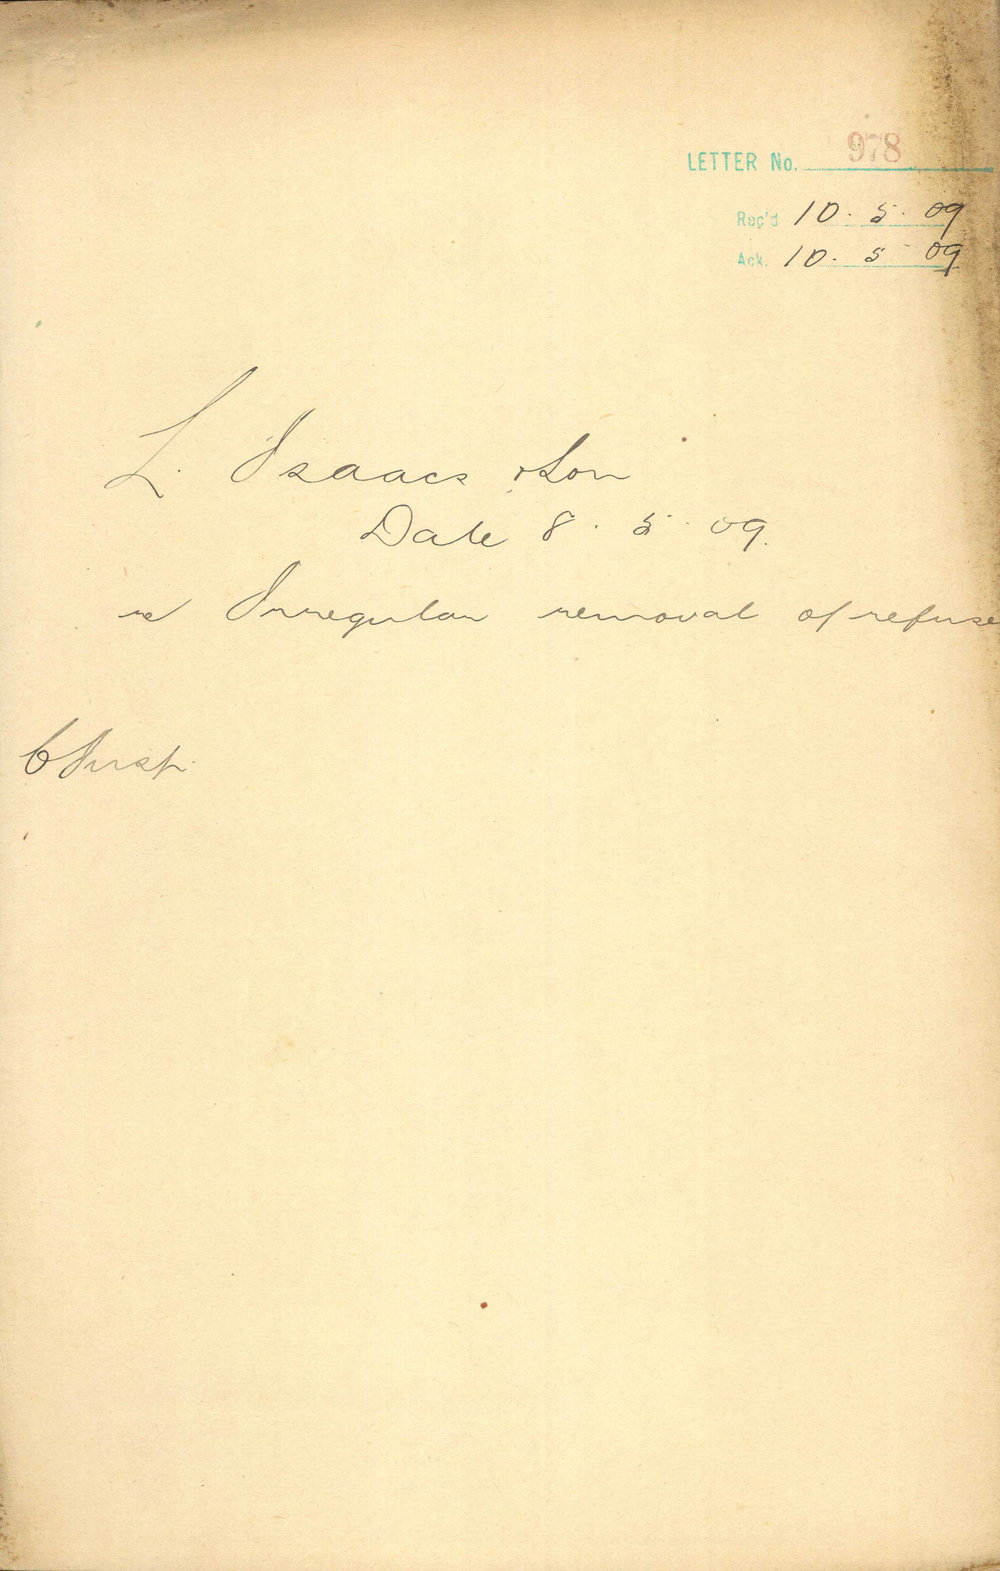 LETTER No. 978
Rec'd 10. 5. 09
Ack. 10. 5 09
L. Isaacs & Son
Date 8. 5. 09.
re Irregular removal of refuse
C Insp.